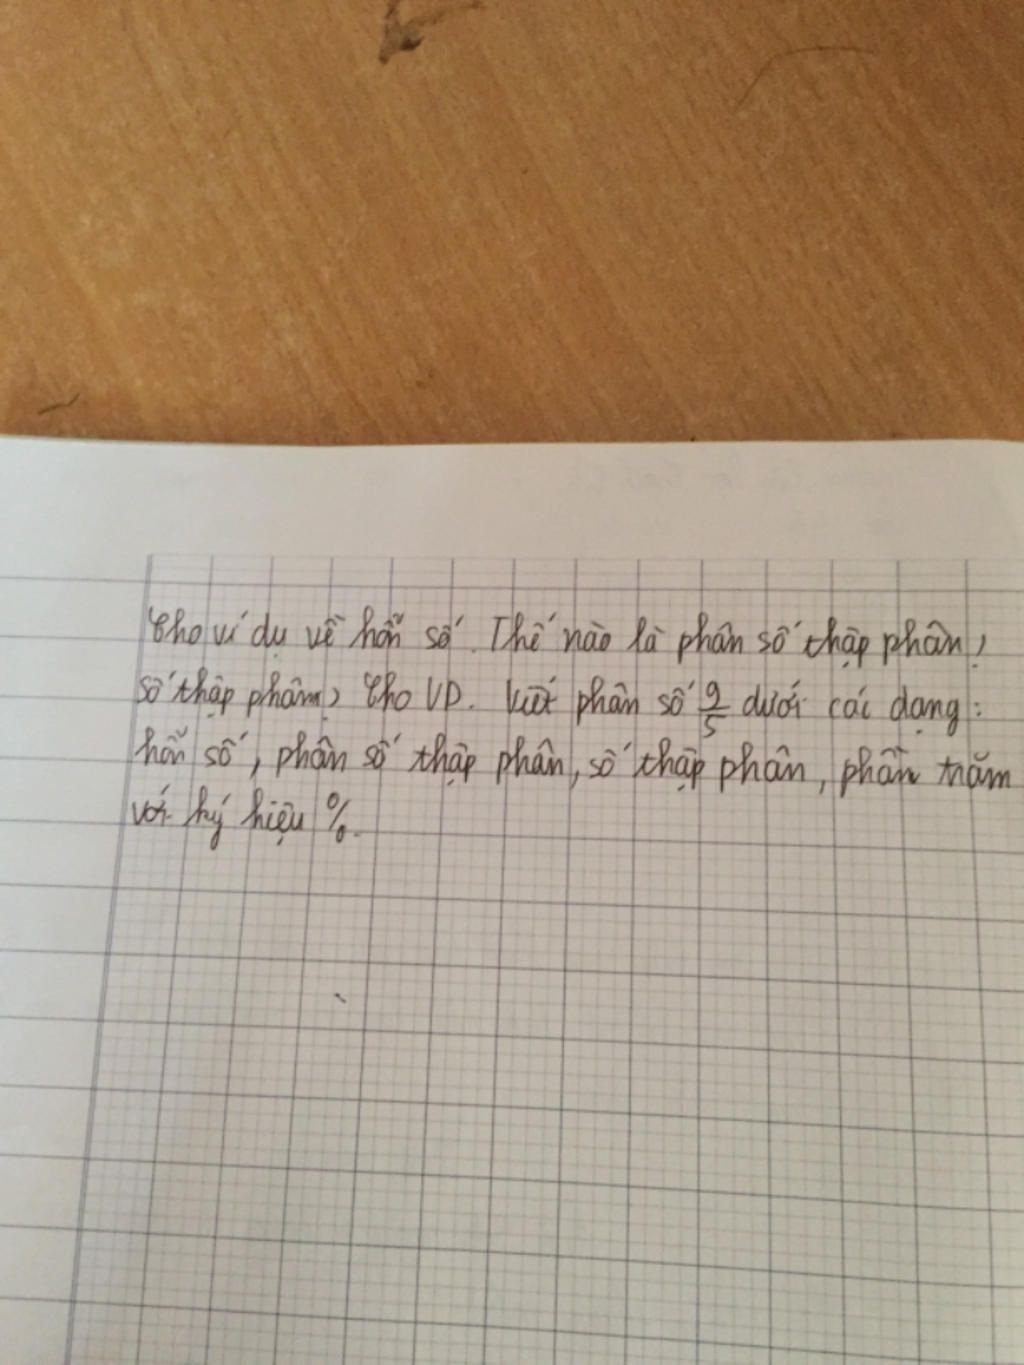 Cho ví dụ về hỗn số. Thế nào là phân số thập phân?
số thập phân? Cho VD. Viết phân số 9/5 dưới các dạng:
hỗn số, phân số thập phân, số thập phân, phần trăm
với ký hiệu %.